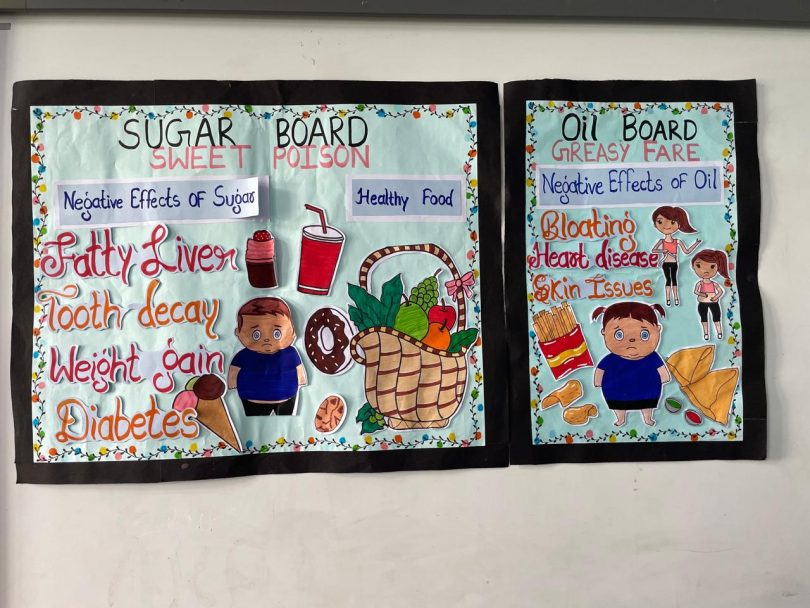 SUGAR BOARD
SWEET POISON
Negative Effects of Sugar
Healthy Food
Fatty Liver
Tooth decay
Weight gain
Diabetes
Oil BOARD
GREASY FARE
Negative Effects of Oil
Bloating
Heart disease
Skin Issues